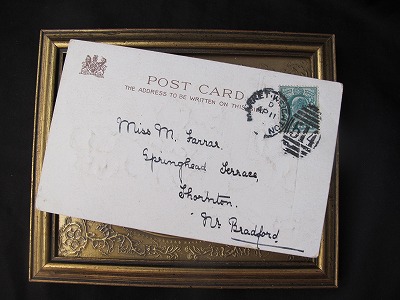 POST CARD
THE ADDRESS TO BE WRITTEN ON THIS
D
AP 11
514
Miss M. Farrar.
Springhead Terrace,
Thornton.
Nr. Bradford.